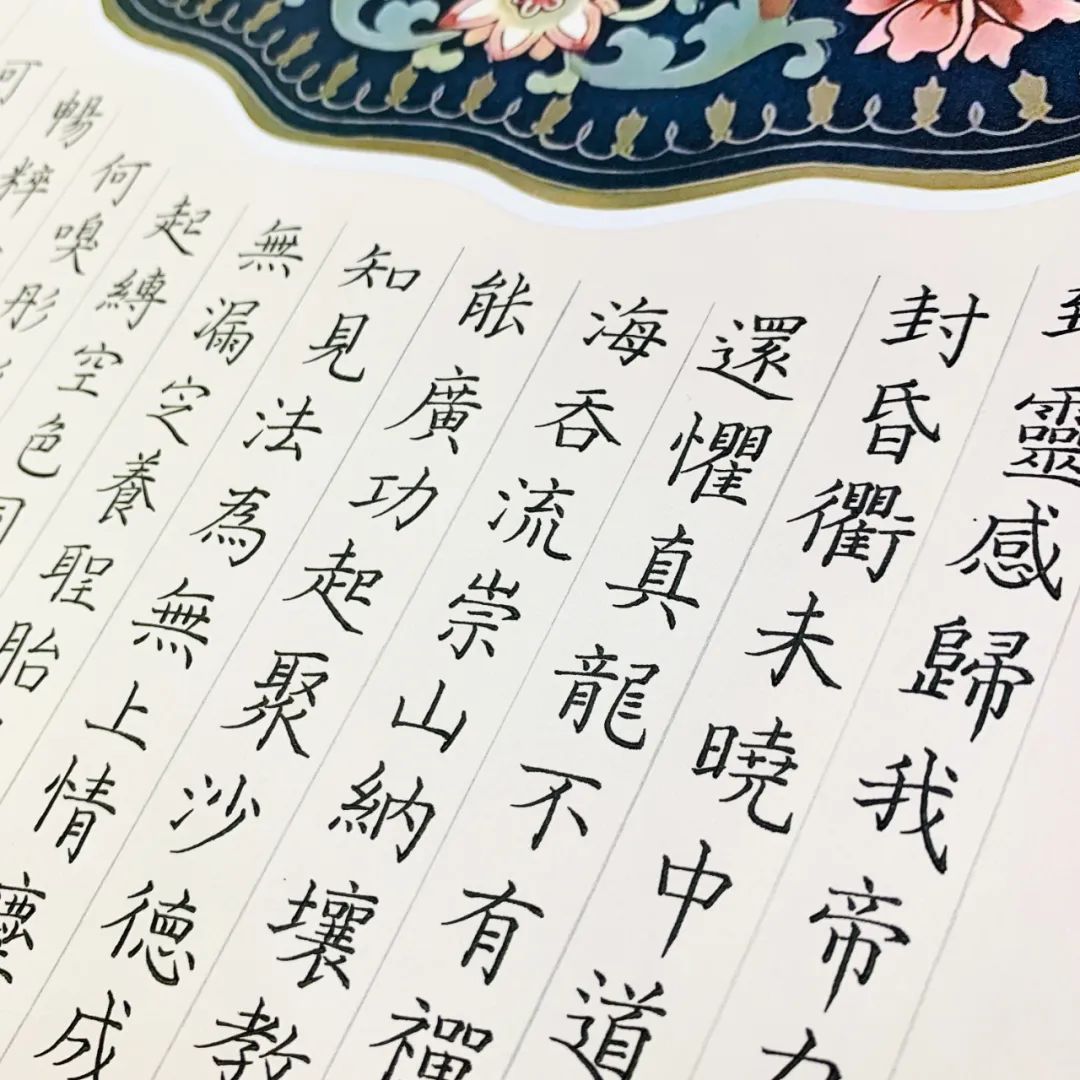 靈感歸我帝
封昏衢未曉中道
還懼真龍不有禪
海吞流崇山納壤教
能廣功起聚沙德成
知見法為無上情
無漏空養聖胎
起縛空色同
何嗅彤
暢粹